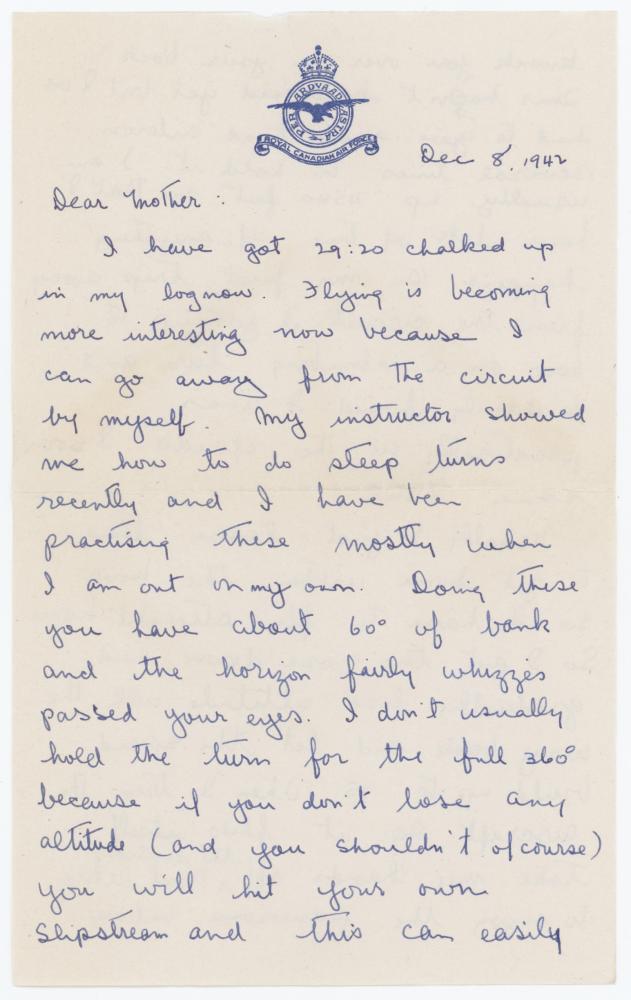 PER ARDVA AD ASTRA
ROYAL CANADIAN AIR FORCE
Dec 8, 1942
Dear Mother:
I have got 29:20 chalked up
in my log now. Flying is becoming
more interesting now because I
can go away from the circuit
by myself. My instructor showed
me how to do steep turns
recently and I have been
practising these mostly when
I am out on my own. Doing these
you have about 60° of bank
and the horizon fairly whizzes
passed your eyes. I don't usually
hold the turn for the full 360°
because if you don't lose any
altitude (and you shouldn't of course)
you will hit your own
slipstream and this can easily